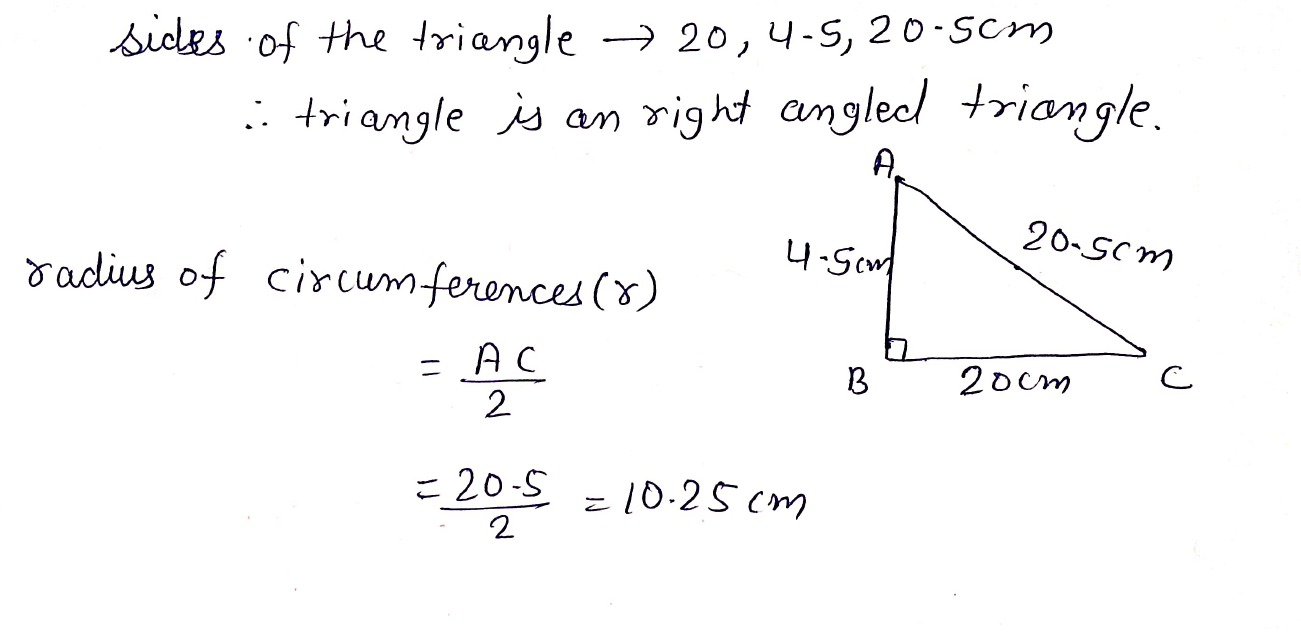 sides of the triangle → 20, 4.5, 20.5cm
∴ triangle is an right angled triangle.
A
4.5cm
20.5cm
B
20cm
C
radius of circumferences (r)
= AC/2
= 20.5/2 = 10.25 cm